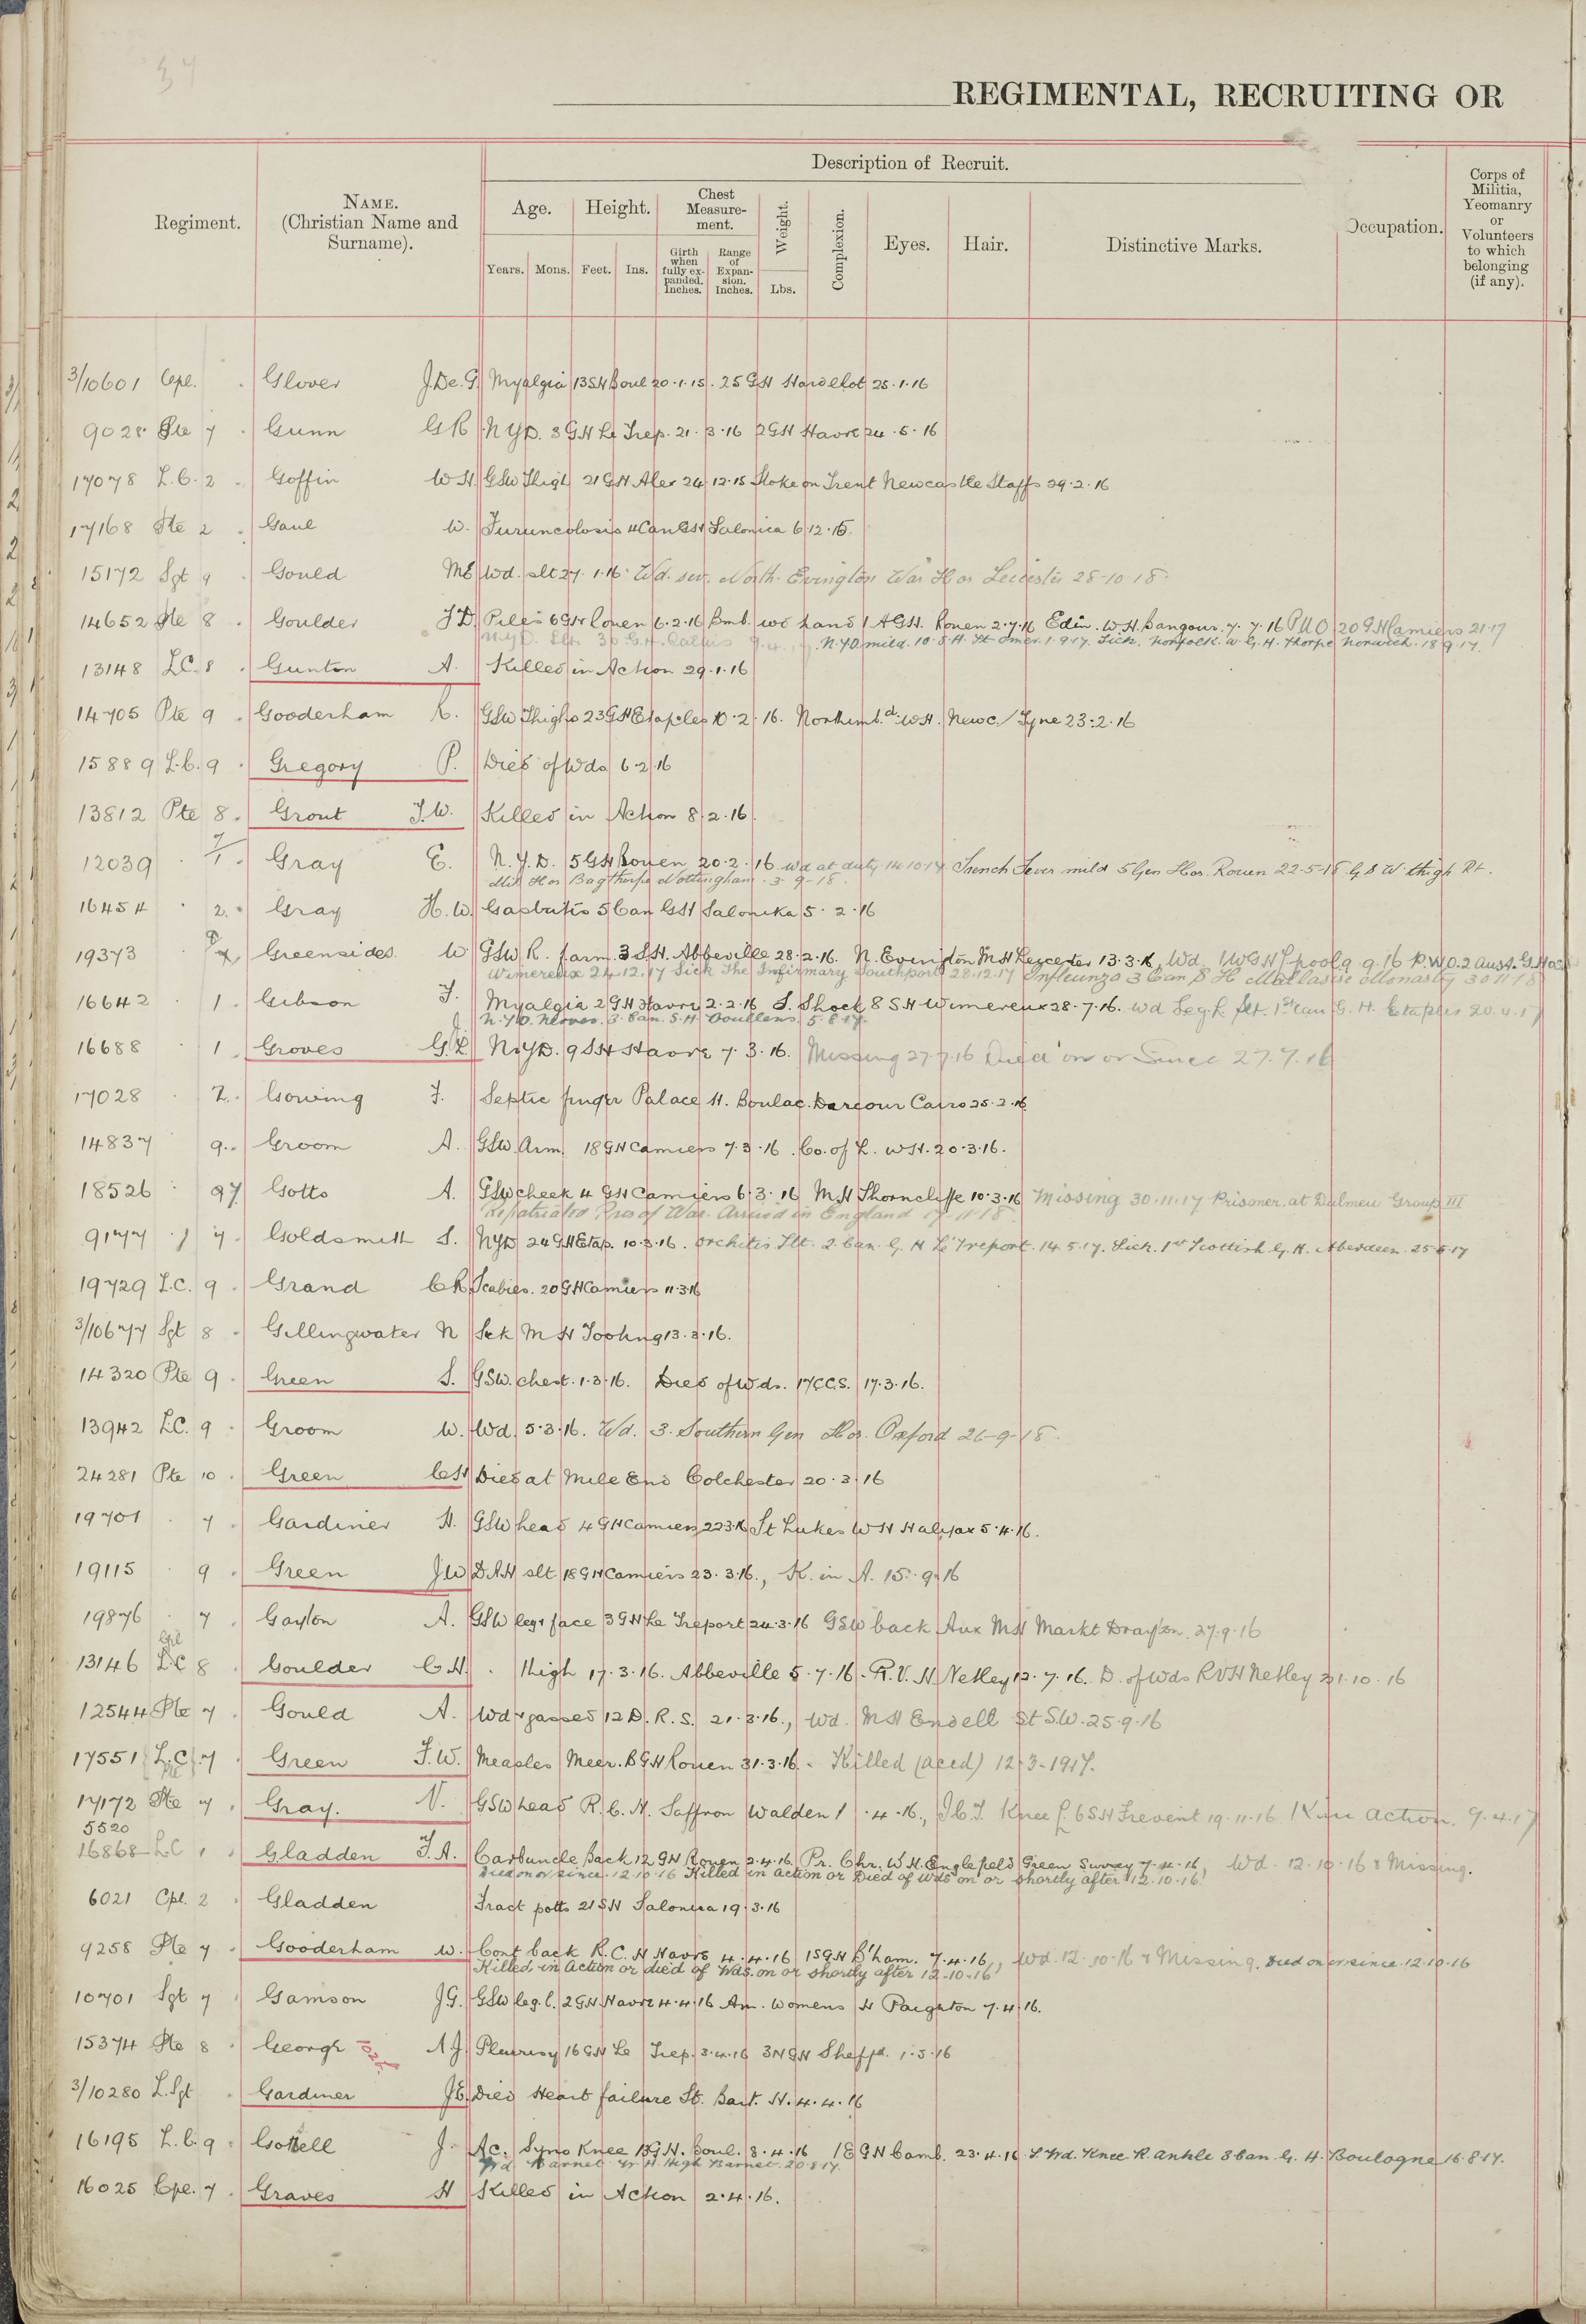 34
REGIMENTAL, RECRUITING OR
Description of Recruit.
Regiment.
NAME.
(Christian Name and
Surname).
Age.
Height.
Chest
Measure-
ment.
Weight.
Complexion.
Eyes.
Hair.
Distinctive Marks.
Occupation.
Corps of
Militia,
Yeomanry
or
Volunteers
to which
belonging
(if any).
Years.
Mons.
Feet.
Ins.
Girth
when
fully ex-
panded.
Inches.
Range
of
Expan-
sion.
Inches.
Lbs.
3/10601 Cpl. Glover J.De.G. Myalgia 13SH Boul 20.1.15. 25 GH Hardelot 25.1.16
9028 Pte 7 Gunn G R N.Y.D. 3 GH Le Trep. 21.3.16 2GH Havre 24.5.16
17078 L.C. 2 Goffin W H. GSW Thigh 21 GH Alex 24.12.15 Stoke on Trent Newcastle Staffs 29.2.16
17168 Pte 2 Gaul W. Furuncolosis 4 Can GH Salonica 6.12.15.
15172 Sgt 9 Gould ME Wd. slt 27.1.16. Wd. sev. North. Evington War Hos Leicester 28-10-18.
14652 Pte 8 Goulder J D. Piles 6GH Rouen 6.2.16 Bmb. wd hand 1 AGH. Rouen 2.7.16 Edin. W.H. Bangour. 7.7.16 PUO 20 GH Camiers 21.17
N.Y.D. 30 G.H. Calais 9.4.17. N.Y.D mild. 10.S.H. St Omer. 1.9.17. Sick. Norfolk. W.G.H. Thorpe Norwich. 18.9.17.
13148 L.C. 8 Gunton A. Killed in Action 29.1.16
14705 Pte 9 Gooderham R. GSW Thighs 23GH Etaples 10.2.16. Northumb.d W.H. Newc./Tyne 23.2.16
15889 L.C. 9 Gregory P. Died of Wds 6.2.16
13812 Pte 8 Grout J.W. Killed in Action 8.2.16.
12039 7 1 Gray E. N.Y.D. 5GH Rouen 20.2.16 wd at duty 14.10.17 Trench Fever mild 5 Gen Hos. Rouen 22-5-18 G S W thigh Rt.
Mil Hos Bagthorpe Nottingham. 3-9-18.
16454 2 Gray H.W. Gastritis 5 Can GH Salonika 5.2.16
19373 Greensides W GSW R. farm. 3 S.H. Abbeville 28.2.16. N. Evington MH Leicester 13.3.16, Wd. 1WGH L'pool 9.9.16 P.U.O. 2 Aust. G.H
Wimereux 24.12.17 Sick The Infirmary Southport 28.12.17 Influenza 3 Can S H Mallassise Monastry 30 11 18
16642 1 Gibson F. Myalgia 2 G.H Havre 2.2.16 S. Shock 8 SH Wimereux 28.7.16. Wd Leg. L. slt. 1st Can G. H. Etaples 20.4.17
N.Y.D. Nerves. 3. Can. S.H. Doullens. 5.8.17.
16688 1 Groves G.L N.Y.D. 9SH Havre 7.3.16. Missing 27.7.16 Died on or Since 27.7.16
17028 2 Gowing F. Septic finger Palace H. Boulac. Dareour Cairo 25.2.16
14837 9 Groom A. GSW Arm 18 GH Camiers 7.3.16. Co. of L. WH. 20.3.16.
18526 97 Gotts A. GSW cheek 4 GH Camiers 6.3.16 MH Shorncliffe 10.3.16 Missing 30.11.17 Prisoner. at Dulmen Group III
Repatriated Pris of War. Arrived in England 17 11 18.
9177 7 Goldsmith S. NYD 24 GH Etap. 10.3.16. Orchitis Slt. 2. Can. G. H Le Treport. 14.5.17. Sick. 1st Scottish G. H. Aberdeen. 25.5.17
19729 L.C. 9 Grand C R Scabies. 20 GH Camiers 11.3.16
3/10677 Sgt 8 Gillingwater N Sick M H Tooting 13.3.16.
14320 Pte 9 Green S. GSW. chest. 1.3.16. Died of Wds. 17 C.C.S. 17.3.16.
13942 L.C. 9 Groom W. Wd. 5.3.16. Wd. 3. Southern Gen Hos. Oxford 26-9-18.
24281 Pte 10 Green C H Died at Mile End Colchester 20.3.16
19701 7 Gardiner H. GSW head 4 GH Camiers 22.3.16 St Lukes WH Halifax 5.4.16.
19115 9 Green J W D.A.H slt. 18 GH Camiers 23.3.16., K. in A. 15.9.16
19876 7 Gayton A. GSW leg + face 3 GH Le Treport 24.3.16 GSW back Aux MH Markt Drayton. 27.9.16
Cpl
13146 L.C 8 Goulder C H. thigh 17.3.16. Abbeville 5.7.16. R.V. H Netley 12.7.16. D. of Wds RVH Netley 31.10.16
12544 Pte 7 Gould A. Wd + gassed 12 D.R.S. 21.3.16., Wd. MH Endell St S.W. 25.9.16
17551 L.C 7 Green F.W. Measles Meer. B GH Rouen 31.3.16. Killed (accd) 12-3-1917.
17172 Pte 7 Gray. V. GSW head R.C.H. Saffron Walden 1.4.16., I.C.T. Knee L. 6 SH Frevent 19.11.16 K in action. 9.4.17
5520
16868 LC 1 Gladden F.A. Carbuncle Back 12 GH Rouen 2.4.16. Pr. Chr. W.H. Englefield Green Surrey 7.4.16, Wd. 12.10.16 & Missing.
Died on or since. 12.10.16 Killed in action or Died of wds on or shortly after 12.10.16
6021 Cpl. 2 Gladden Fract potts 21 SH Salonica 19.3.16
9258 Pte 7 Gooderham W. Cont back R.C.H Havre 4.4.16 1SGH B'ham. 7.4.16, Wd. 12.10.16 & Missing. Died on or since. 12.10.16
Killed in action or died of Wds. on or shortly after 12.10.16
10701 Sgt 7 Gamson J.G. GSW leg. l. 2 GH Havre 4.4.16 Am. Womens H Paignton 7.4.16.
15374 Pte 8 George A J. Pleurisy 16 GH Le Trep. 3.4.16 3N GH Sheff'd. 1.5.16
3/10280 L.Sgt Gardiner J E. Died Heart failure St. Bart. H. 4.4.16
16195 L.C. 9 Gottell J. Ac. Syno Knee 13 G.H. Boul. 8.4.16 1 E GH Camb. 23.4.16 S. Wd. Knee R. Ankle 3 Can. G. H. Boulogne 16.8.17.
Wd Barnet W H. High Barnet. 20.8.17.
16025 Cpl. 7 Graves H Killed in Action 2.4.16.